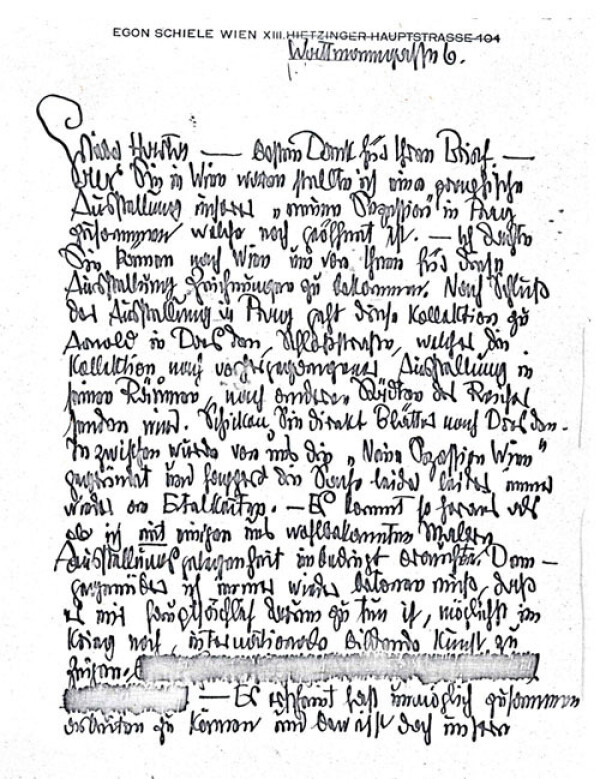 EGON SCHIELE WIEN XIII. HIETZINGER-HAUPTSTRASSE 104
Wattmanngasse 6.
Lieber — besten Dank für Ihren Brief. —
Als Sie in Wien waren stellte ich eine graphische
Ausstellung unserer „neuen Sezession" in Prag
zusammen welche noch geöffnet ist. — Ich dachte
Sie kommen nach Wien um von Ihnen für diese
Ausstellung Zeichnungen zu bekommen. Nach Schluß
der Ausstellung in Prag geht diese Kollektion zu
Arnold in Dresden, Schloßstrasse, welcher die
Kollektion nach vorhergegangener Ausstellung in
seinen Räumen, nach anderen Städten des Reiches
senden wird. Schicken Sie direkt Blätter nach Dresden. —
In zwischen wurde von uns die „Neue Sezession Wien"
gegründet und die leider leider immer
wieder am — Es kommt so heraus als
ob ich mit einigen uns wohlbekannten Malern
Ausstellungsgelegenheit unbedingt Dem —
gegenüber ich immer wieder betonen muß, daß
es mir hauptsächlich darum zu tun ist, möglichst im
Krieg noch, internationale bildende Kunst zu
zeigen.
— Es scheint fast unmöglich zusammen
arbeiten zu können und das ist doch unsere